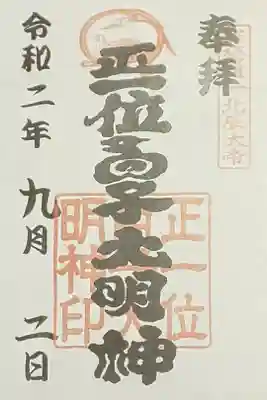 奉拝
正一位高子大明神
令和二年 九月 二日
正一位
明神印